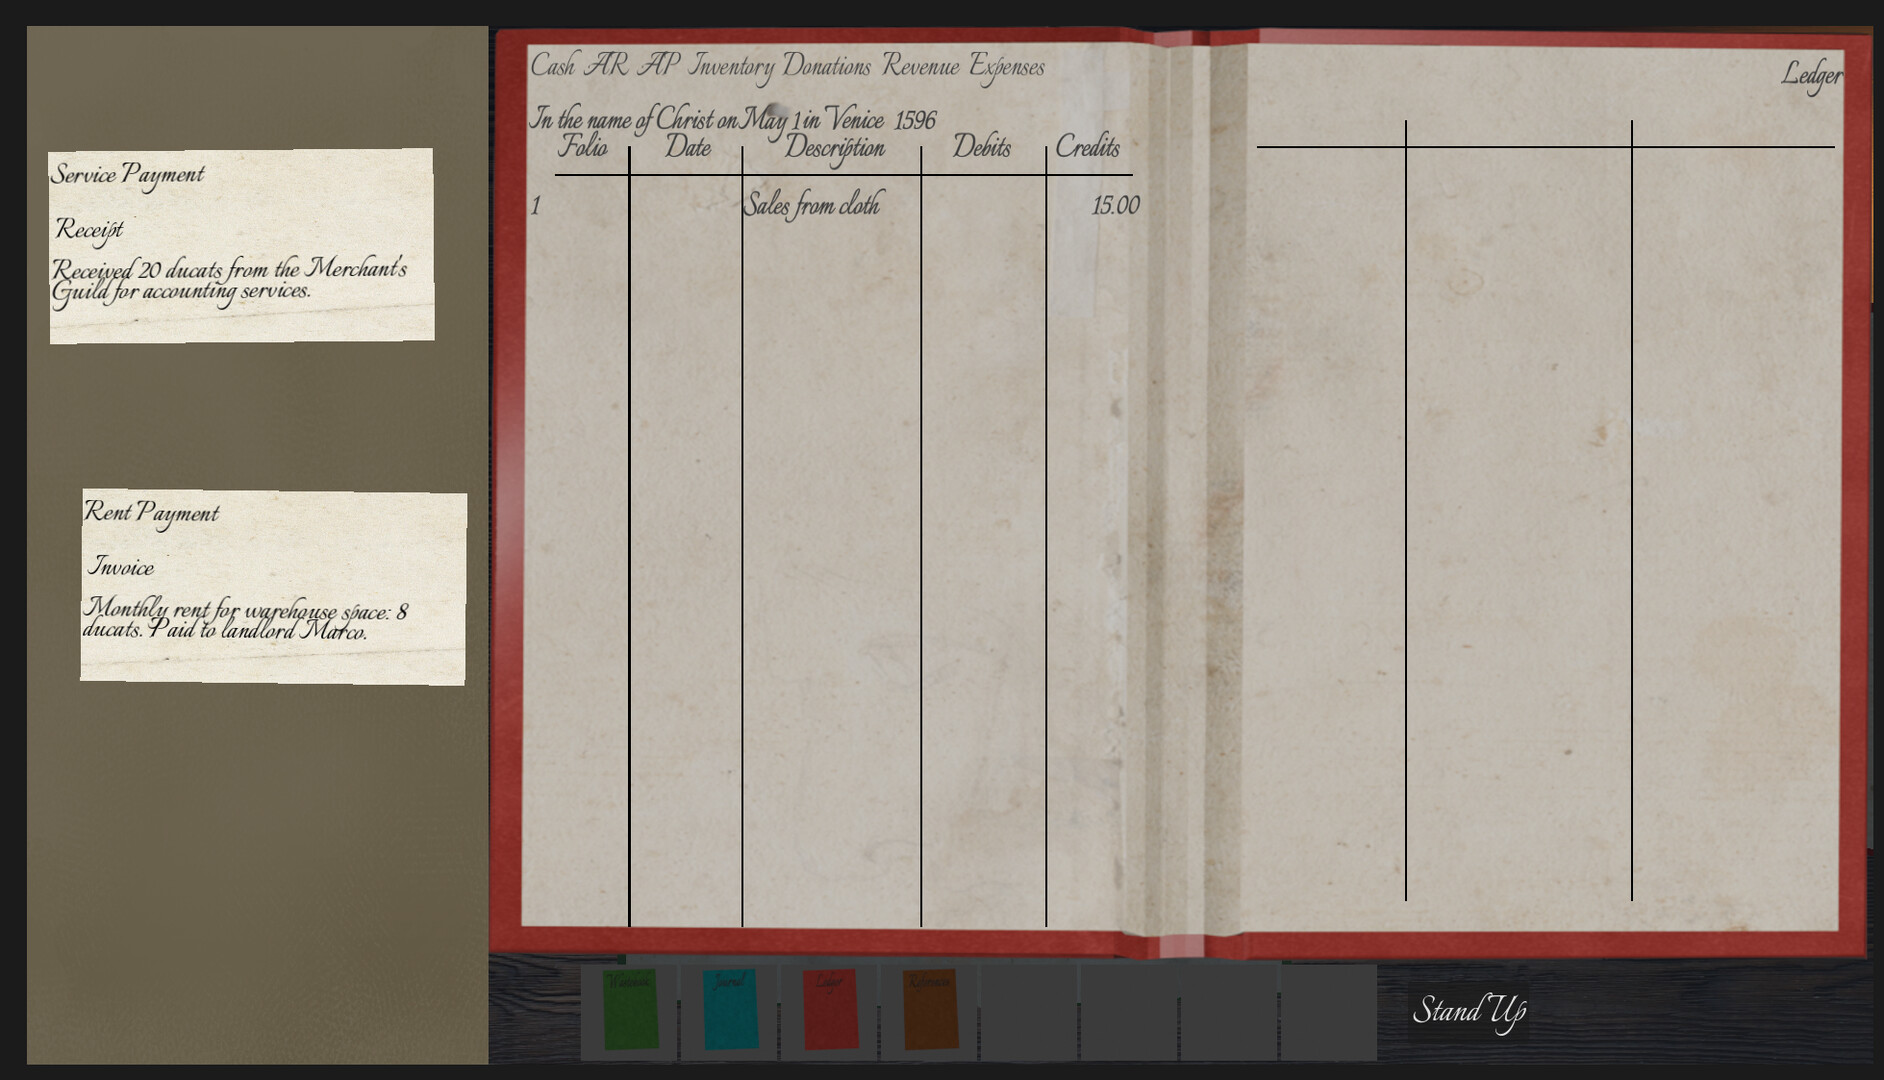 Service Payment
Receipt
Received 20 ducats from the Merchant's
Guild for accounting services.
Rent Payment
Invoice
Monthly rent for warehouse space: 8
ducats. Paid to landlord Marco.
Cash AR AP Inventory Donations Revenue Expenses
In the name of Christ on May 1 in Venice 1596
Folio Date Description Debits Credits
1 Sales from cloth 15.00
Ledger
Journal Ledger
Stand Up